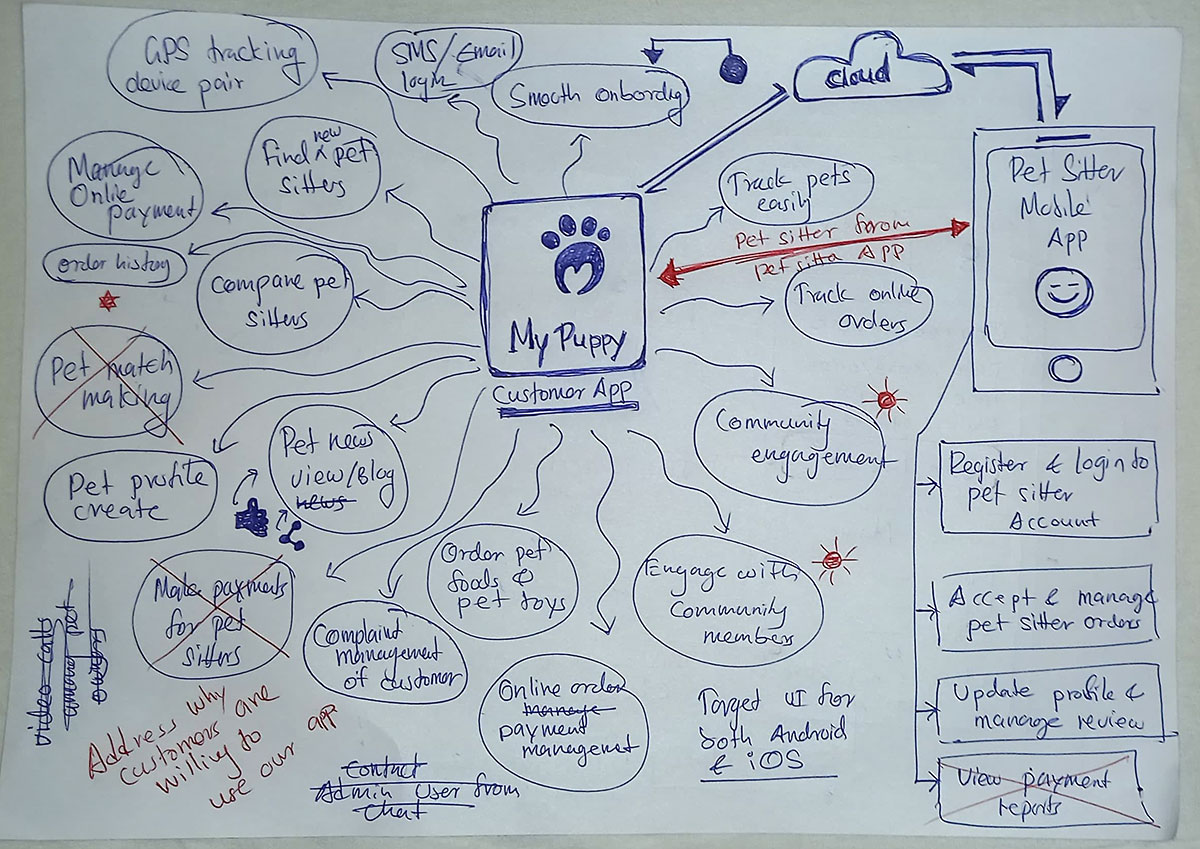 GPS tracking
device pair
SMS/Email
login
Smooth onbordig
cloud
Find new pet
sitters
Manage
Onlie
payment
order history
Compare pet
sitters
Pet match
making
Pet profile
create
Pet news
view/Blog
news
Make payments
for pet
sitters
Complaint
management
of customer
Order pet
foods &
pet toys
Online order
manage
payment
managemet
Engage with
community
members
Community
engagement
Track pets
easily
Pet sitter from
pet sitta APP
Track online
orders
My Puppy
Customer App
Pet Sitter
Mobile
App
Register & login to
pet sitter
Account
Accept & manage
pet sitter orders
Update profile &
manage review
View payment
reports
Target UI for
both Android
& iOS
Contact
Admin User from
chat
Address why
customers are
willing to
use our app
video calls
pet
owners